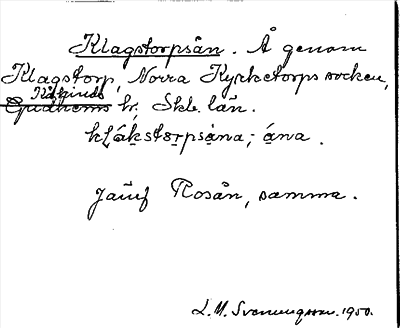 Klagstorpsån. Å genom
Klagstorp, Norra Kyrketorps socken,
Kåkinds
Gudhems hd, Skb. län.
kḷákstǫrpsåna; -åna.
Jämf Rosån, samma.
L. M. Svenungsson. 1950.